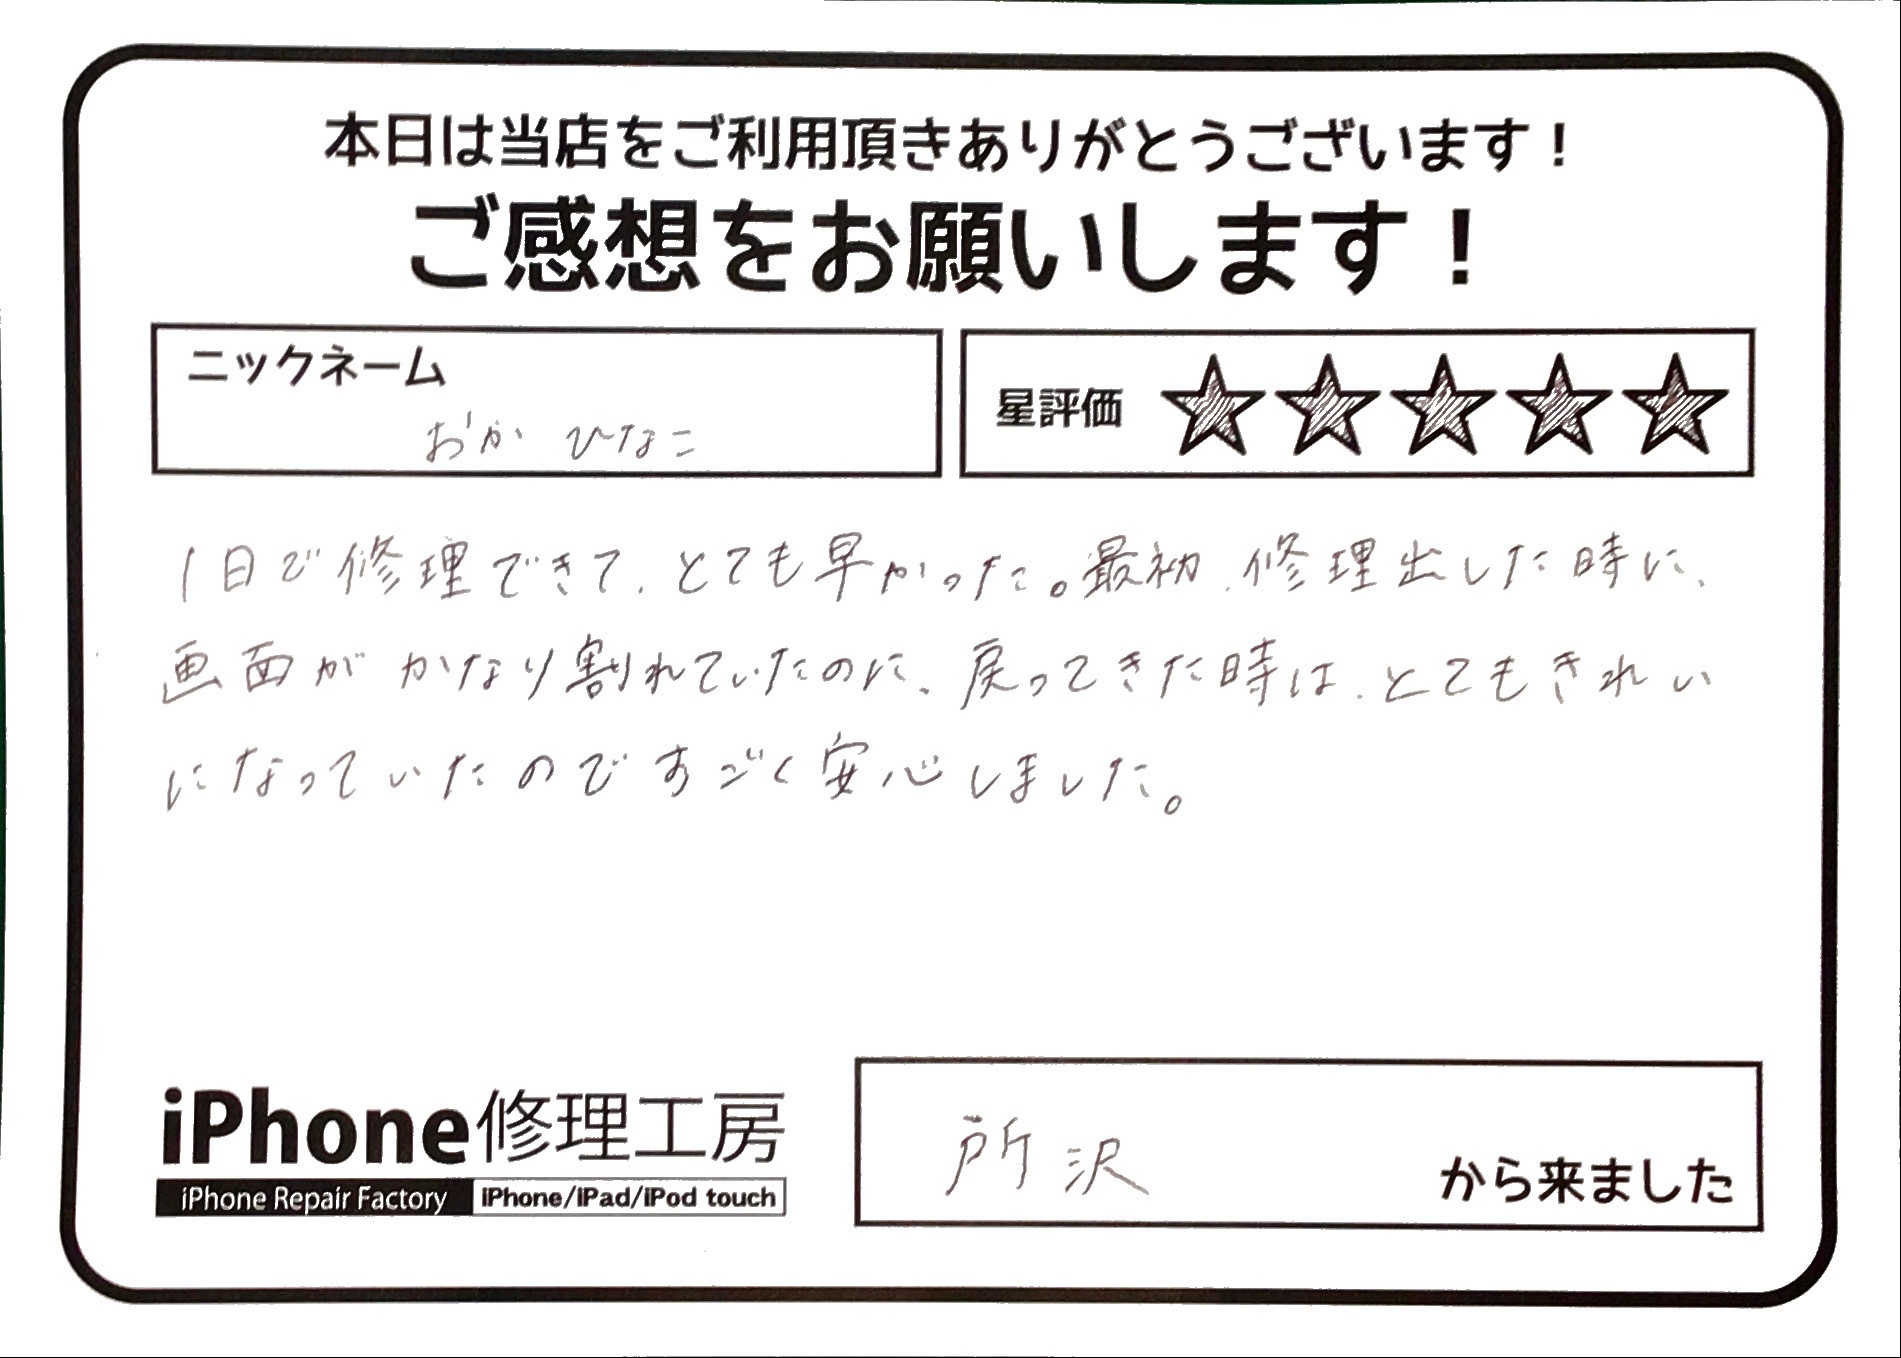 本日は当店をご利用頂きありがとうございます！
ご感想をお願いします！
ニックネーム
おか ひなこ
星評価 ★★★★★
1日で修理できて、とても早かった。最初、修理出した時に、
画面がかなり割れていたのに、戻ってきた時は、とてもきれい
になっていたのですごく安心しました。
iPhone修理工房
iPhone Repair Factory iPhone/iPad/iPod touch
所沢 から来ました